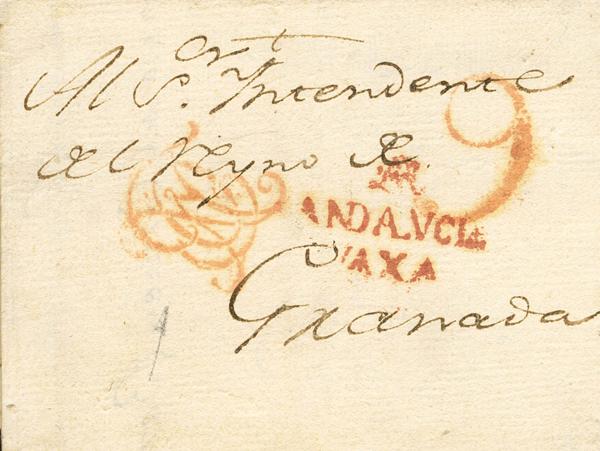 Al Sor. Intendente
del Reyno de
9
ANDALVCIA
VAXA
Granada